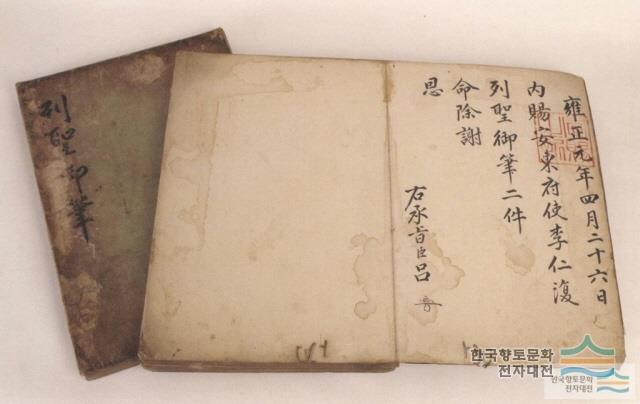 列聖御筆
雍正元年四月二十六日
内賜安東府使李仁復
列聖御筆二件
命除謝
恩
右承旨臣呂
한국향토문화
전자대전
한국향토문화
전자대전